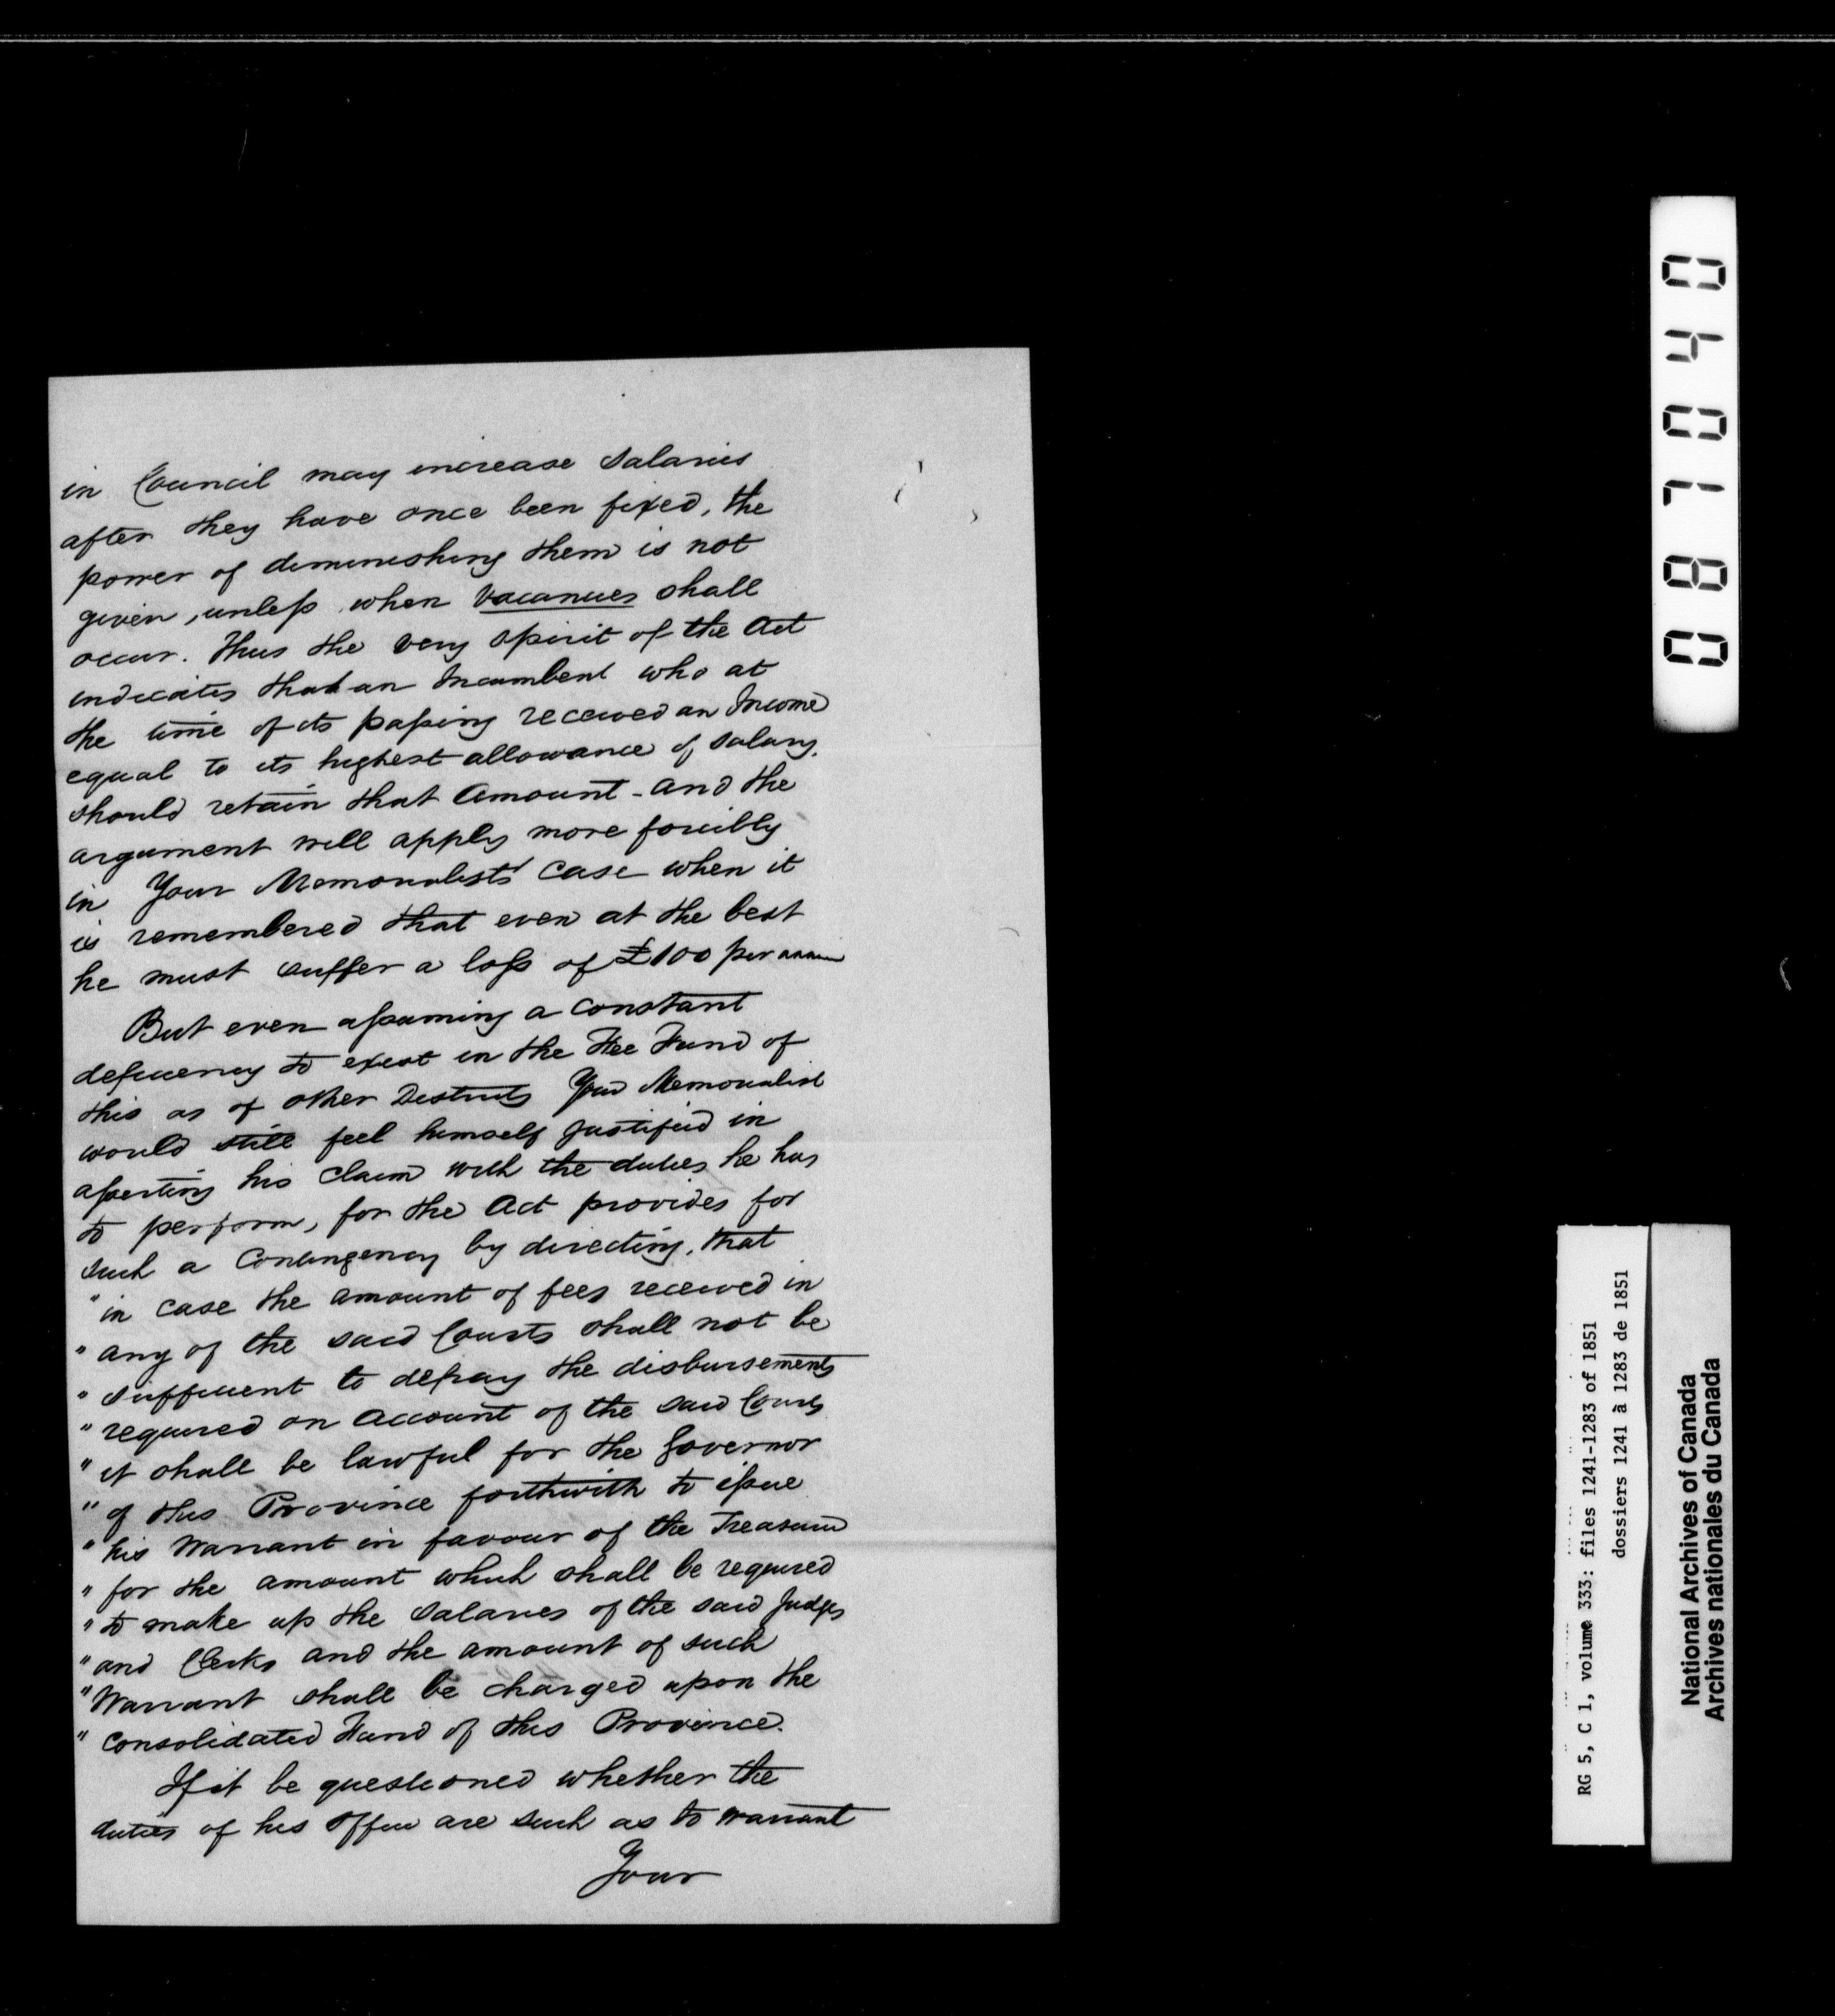 in Council may increase Salaries
after they have once been fixed, the
power of diminishing them is not
given, unless when Vacancies shall
occur. Thus the very spirit of the Act
indicates that an Incumbent who at
the time of its passing received an Income
equal to its highest allowance of Salary.
should retain that Amount - and the
argument will apply more forcibly
in Your Memorialists' case when it
is remembered that even at the best
he must suffer a loss of £100 per annum
But even assuming a constant
deficiency to exist in the Fee Fund of
this as of other Districts Your Memorialist
would still feel himself justified in
asserting his claim with the duties he has
to perform, for the Act provides for
such a Contingency by directing, that
"in case the amount of fees received in
"any of the said Courts shall not be
"sufficient to defray the disbursements
"required on Account of the said Courts
"it shall be lawful for the Governor
"of this Province forthwith to issue
"his Warrant in favour of the Treasurer
"for the amount which shall be required
"to make up the Salaries of the said Judges
"and Clerks and the amount of such
"Warrant shall be charged upon the
"Consolidated Fund of this Province.
If it be questioned whether the
duties of his Office are such as to warrant
Your
087040
RG 5, C 1, volume 333: files 1241-1283 of 1851
dossiers 1241 à 1283 de 1851
National Archives of Canada
Archives nationales du Canada